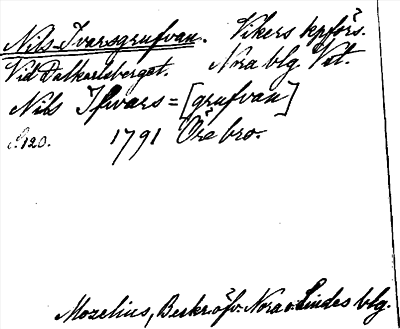 Nils Ivarsgrufvan. Vikers kpförs.
Vid Dalkarlsberget. Nora blg. Vst.
Nils Ifvars=[grufvan]
S. 120. 1791 Örebro.
Mozelius, Beskr. öfv. Nora o. Lindes blg.